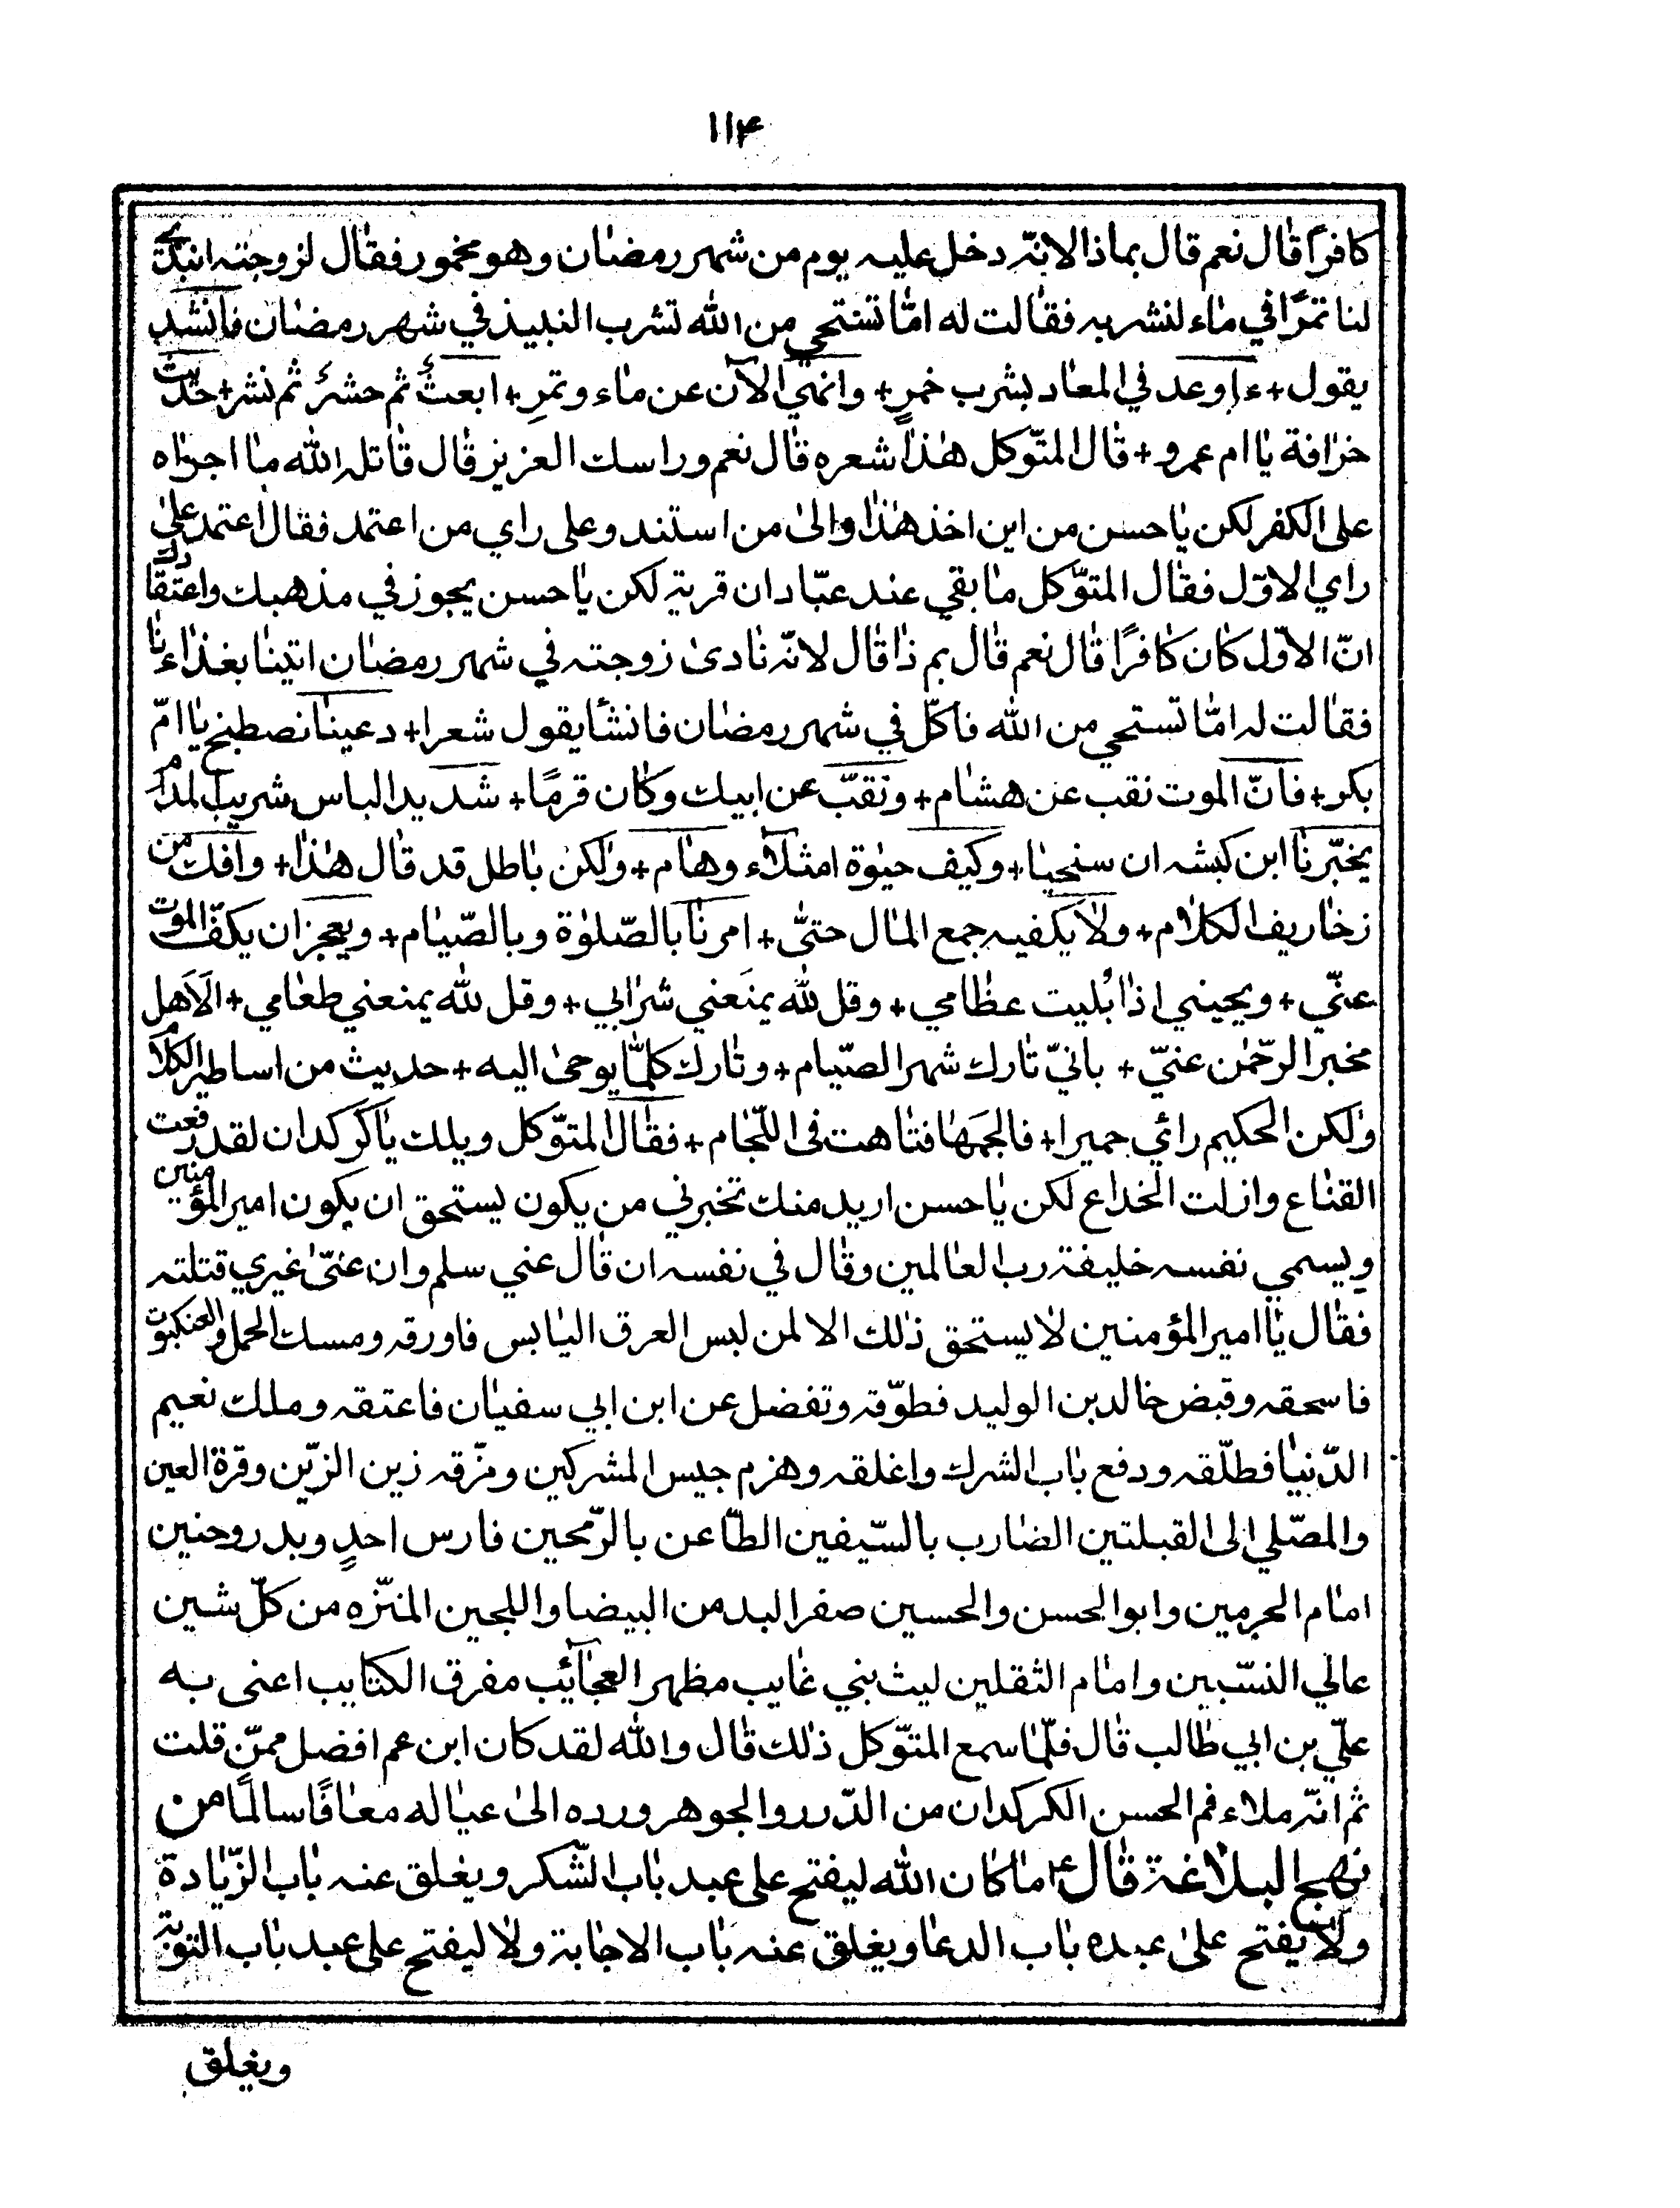 ١١۴
كافراً قال نعم قال بماذا لانّه دخل عليه يوم من شهر رمضان وهو مخمور فقال لزوجته انبذي
لنا تمرًا في ماء لنشربه فقالت له امّا تستحي من الله تشرب النبيذ في شهر رمضان فانشد
يقول + ءاوعد في المعاد بشرب خمرٍ + وانهي الآن عن ماء وتمرٍ + ابعثٌ ثم حشرٌ ثم نشر + حديث
خرافة يا ام عمرو + قال المتوّكل هذا شعره قال نعم وراسك العزيز قال قاتله الله ما اجراه
على الكفر لكن يا حسن من اين اخذ هذا والى من استند وعلى راي من اعتمد فقال اعتمد على
راي الاوّل فقال المتوّكل ما بقي عند عبّادان قرية لكن يا حسن يجوز في مذهبك واعتقادك
انّ الاوّل كان كافرًا قال نعم قال بم ذا قال لانّه نادى زوجته في شهر رمضان اتينا بغذاءنا
فقالت له امّا تستحي من الله فاكّل في شهر رمضان فانشأ يقول شعرا + دعينا نصطبح يا امّ
بكر + فانّ الموت نقب عن هشام + ونقبّ عن ابيك وكان قرمًا + شديد الباس شريب المدام
يخبّرنا ابن كبشه ان سنحيا + وكيف حيوة امثلاء وهام + ولكن باطل قد قال هذا + وافك من
زخاريف الكلام + ولا يكفيه جمع المال حتّى + امرنا بالصّلوٰة وبالصّيام + ويعجز ان يكفّ الموت
عنّي + ويحيني اذا بُليت عظامي + وقل لله يمنَعني شرابي + وقل لله يمنعني طعامي + الَا هل
مخبر الرّحمٰن عنيّ + بانيّ تارك شهر الصّيام + وتارك كلمّا يوحى اليه + حديث من اساطير الكلام
ولكن الحكيم رائي حميرا + فالجمَها فتاهت فى اللّجام + فقال المتوّكل ويلك يا كَركدان لقد رفعت
القناع وازلت الخداع لكن يا حسن اريد منك تخبرني من يكون يستحق ان يكون امير المؤمنين
ويسمي نفسه خليفة رب العالمين وقال في نفسه ان قال عني سلم وان عنىّ غيري قتلته
فقال يا امير المؤمنين لا يستحق ذلك الا لمن لبس العرق اليابس فاورقه ومسك الحمل والعنكبوت
فاسحقه وقبض خالد بن الوليد فطوّقه وتفضل عن ابن ابي سفيان فاعتقه وملك نعيم
الدّنيا فطلّقه ودفع باب الشرك واغلقه وهزم جيس المشركين ومزّقه زين الزيّن وقرّة العين
والمصّلي الى القبلتين الضارب بالسّيفين الطّاعن بالرّمحين فارس احدٍ وبدر وحنين
امام الحرمين وابو الحسن والحسين صفر اليد من البيضا واللجين المنزّه من كلّ شين
عالي النسّبين وامام الثقلين ليث بني غايب مظهر العجائب مفرق الكتايب اعنى به
عليّ بن ابي طالب قال فلمّا سمع المتوّكل ذلك قال والله لقد كان ابن عم افضل ممنّ قلت
ثم انّه ملاء فم الحسن الكركدان من الدّرر والجوهر ورده الى عياله معافًا سالمًا من
نهج البلاغة قال ع ما كان الله ليفتح على عبد باب الشّكر ويغلق عنه باب الزّيادة
ولا يفتح على عبده باب الدعا ويغلق عنه باب الاجابة ولا ليفتح على عبد باب التوبة
ويغلق